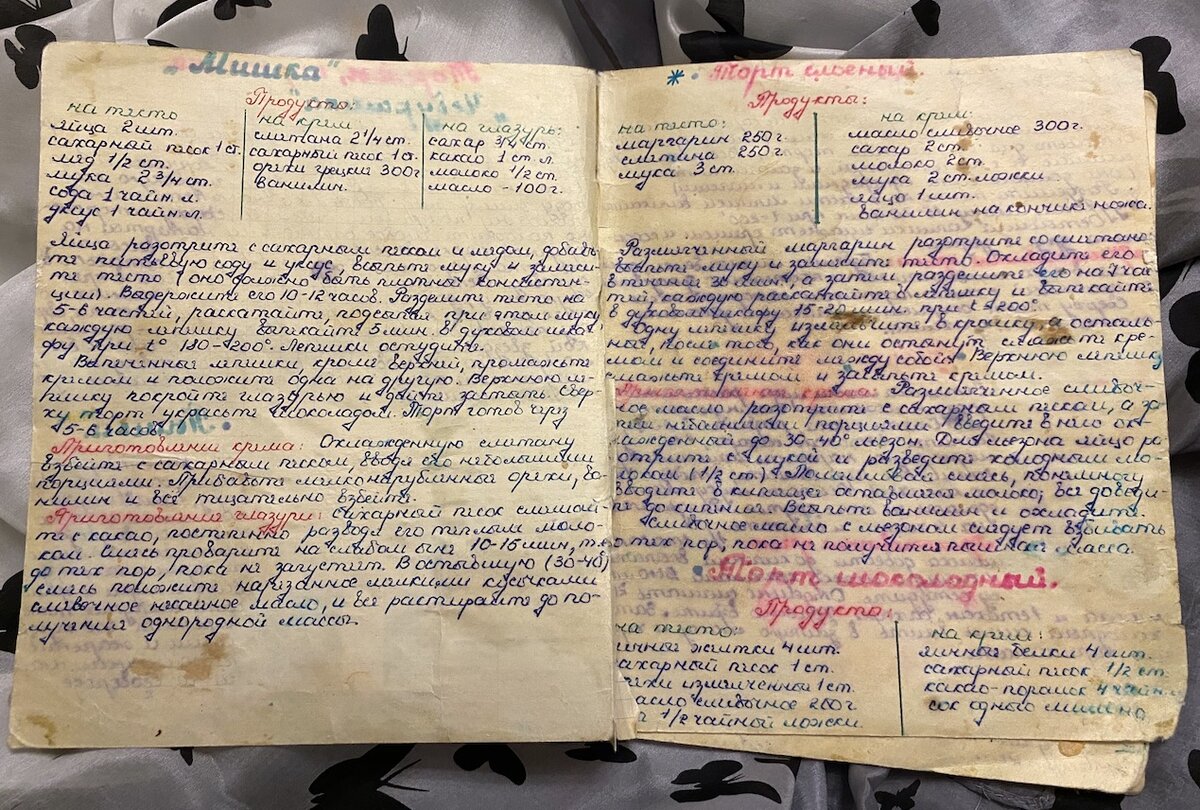 "Мишка"
Продукты:
на тесто
Яйца 2 шт.
сахарный песок 1 ст.
мёд 1/2 ст.
мука 2 3/4 ст.
сода 1 чайн. л.
уксус 1 чайн. л.
на крем
сметана 2 1/4 ст.
сахарный песок 1 ст.
орехи грецкие 300г
ванилин.
на глазурь:
сахар 3/4 ст.
какао 1 ст. л.
молоко 1/2 ст.
масло - 100г.
Яйца разотрите с сахарным песком и мёдом, добавь-
те питьевую соду и уксус, всыпьте муку и замеси-
те тесто (оно должно быть плотной консистен-
ции). Выдержите его 10-12 часов. Разделите тесто на
5-6 частей, раскатайте, подсыпая при этом муку
каждую лепёшку выпекайте 5 мин. в духовом шка-
фу при t° 180-200°. Лепёшки остудите.
Выпеченные лепёшки, кроме верхней, промажьте
кремом и положите одна на другую. Верхнюю ле-
пёшку покройте глазурью и дайте застыть. Свер-
ху торт украсьте шоколадом. Торт готов через
5-6 часов.
Приготовление крема: Охлаждённую сметану
взбейте с сахарным песком, вводя его небольшими
порциями. Прибавьте мелконарубленные орехи, ва-
нилин и всё тщательно взбейте.
Приготовление глазури: сахарный песок смешай-
те с какао, постепенно разводя его тёплым моло-
ком. Смесь проварите на слабом огне 10-15 мин, т.е.
до тех пор, пока не загустеет. В остывшую (30-40°)
смесь положите нарезанное мелкими кусочками
сливочное несолёное масло, и всё растирайте до по-
лучения однородной массы.
* Торт слоёный.
Продукты:
на тесто:
маргарин 250г.
сметана 250г.
мука 3 ст.
на крем:
масло сливочное 300г.
сахар 2 ст.
молоко 2 ст.
мука 2 ст. ложки
яйцо 1 шт.
ванилин на кончике ножа.
Размягчённый маргарин разотрите со сметано
всыпьте муку и замесите тесто. Охладите его
в течение 30 мин., а затем разделите его на 7 час
тей, каждую раскатайте в лепёшку и выпекайте
в духовом шкафу 15-20 мин. при t=200°.
одну лепёшку измельчите в крошку, а осталь-
ные, после того, как они остынут смажьте кре-
мом и соедините между собой. Верхнюю лепёшку
смажьте кремом и засыпьте
Приготовление крема: Размягчённое сливоч-
ное масло разотрите с сахарным песком, а за
тем небольшими порциями введите в него ох
лаждённый до 30-40° льезон. Для льезона яйцо ра
отрите с мукой и разведите холодным мо-
локом (1/2 ст.) Помешивая смесь, понемногу
вводите в кипящее оставшееся молоко; всё доведи-
те до кипения. Всыпьте ванилин и охладите.
Сливочное масло с льезоном следует взбивать
до тех пор, пока не получится пышная масса.
Торт шоколадный.
Продукты:
на тесто:
яичные желтки 4 шт.
сахарный песок 1 ст.
орехи измельчённые 1 ст.
масло сливочное 200г
1/2 чайной ложки.
на крем:
яичные белки 4 шт.
сахарный песок 1/2 ст.
какао-порошок 4 чайн.
сок одного лимона.